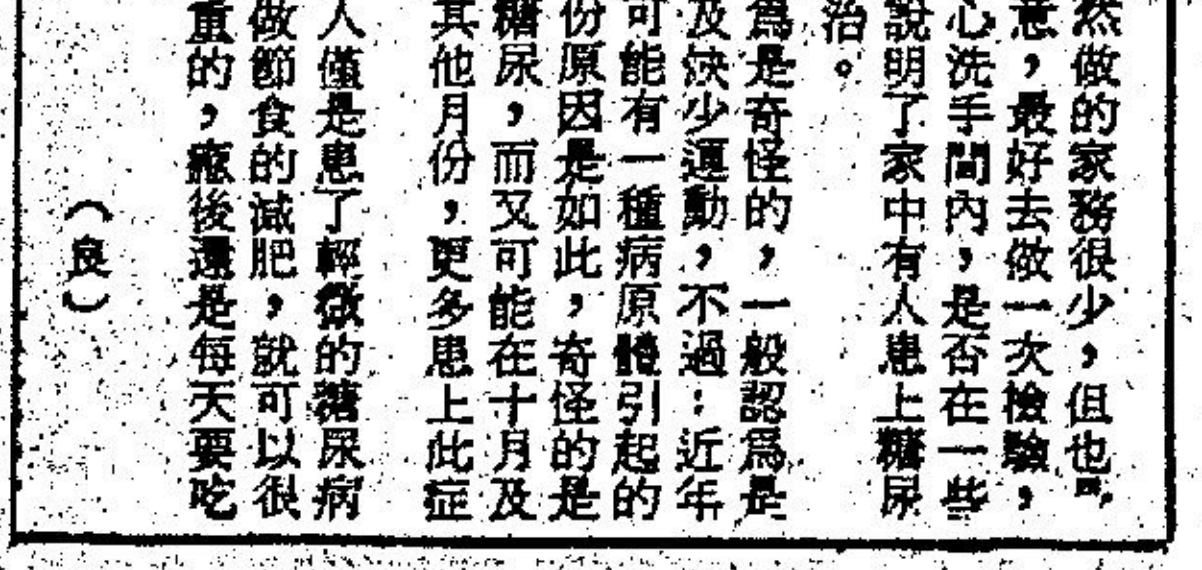 然做的家務很少，但也
意，最好去做一次檢驗，
心洗手間內，是否在一些
說明了家中有人患上糖尿
治。
為是奇怪的，一般認為是
及缺少運動，不過：近年
可能有一種病原體引起的
份原因是如此，奇怪的是
糖尿，而又可能在十月及
其他月份，更多患上此症
人僅是患了輕微的糖尿病
做節食的減肥，就可以很
重的，癒後還是每天要吃
（良）